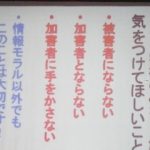 気をつけてほしいこと
・被害者にならない
・加害者とならない
・加害者に手をかさない
・情報モラル以外でも
このことは大切です!